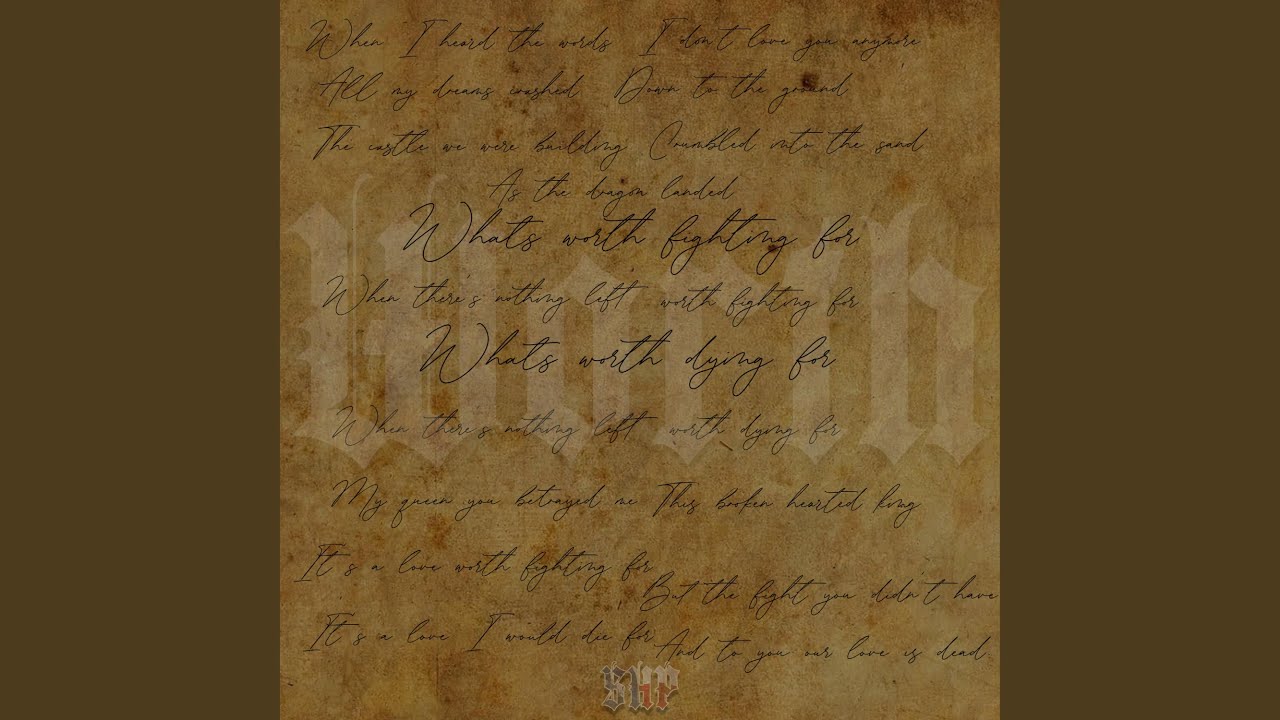 When I heard the words I don't love you anymore
All my dreams crashed Down to the ground
The castle we were building Crumbled into the sand
As the dragon landed
Whats worth fighting for
When there's nothing left worth fighting for
Whats worth dying for
When there's nothing left worth dying for
Worth
My queen you betrayed me This broken hearted king
It's a love worth fighting for
But the fight you didn't have
It's a love I would die for
And to you our love is dead